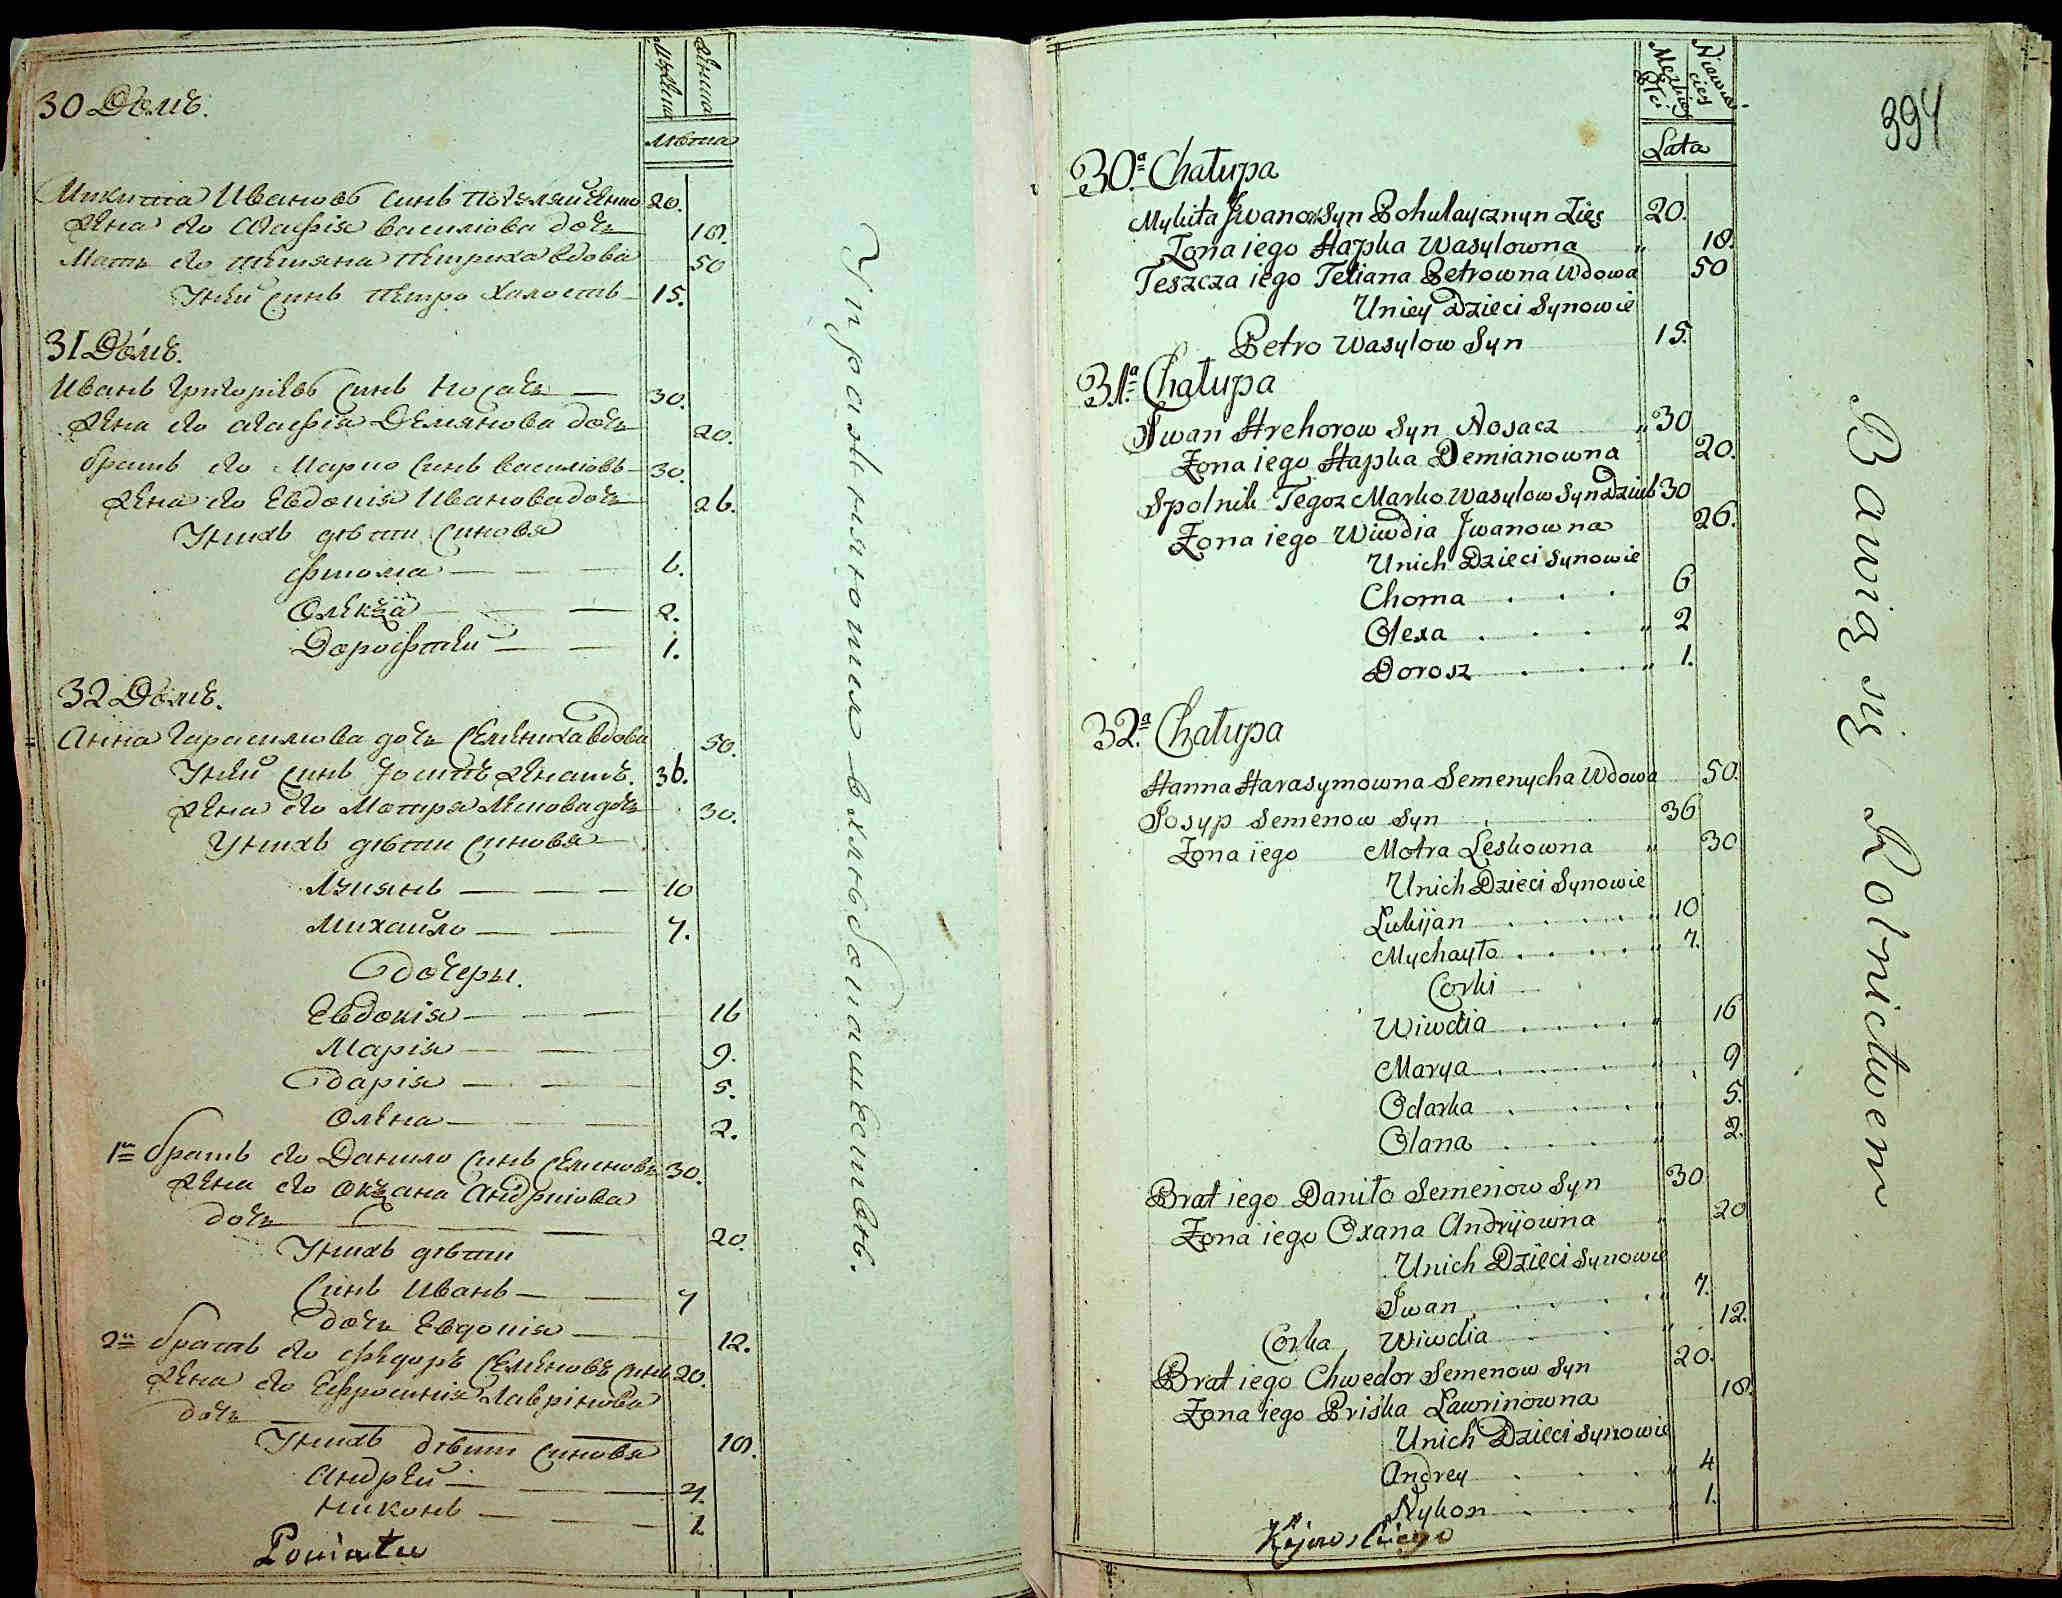 Мужеска
Женска
Лѣта
30 Домъ.
Микита Ивановъ синъ 20.
Жена его Агафія василіова дочь 18.
Мать его тетяна петриха вдова 50
Унеи синъ петро холостъ 15.
31 Домъ.
Иванъ григоріевъ синъ Носачь 30.
Жена его агафія Демянова дочь 20.
братъ его Марко синъ василіовъ 30.
Жена его Евдокія Иванова дочь 26.
Унихъ дѣти синовя
фтома 6.
Олекѯа 2.
Дорофтеи 1.
32 Домъ.
Анна гарасимова дочь Семениха вдова 50.
Унеи синъ Іосипъ женатъ. 36.
Жена его Мотря Лескова дочь 30.
Унихъ дѣти синовя
Лукянъ 10
Михайло 7.
дочеры.
Евдокія 16
Марія 9.
дарія 5.
Олена 2.
1й братъ его Данило синъ Семеновъ 30.
Жена его Окѯана Андріюва
дочь 20.
Унихъ дѣти
Синъ Иванъ 7
дочь Евдокія 12.
2й братъ его федоръ Семеновъ синъ 20.
Жена его Ефросинія Лаврінова
дочь 18.
Унихъ дѣти синовя
Андрей 4.
Никонъ 1.
Powiatu
Упражняютися въ хлѣбопашествѣ.
Męzkiey Płci
Niewieściey
Lata
394
30.ª Chałupa
Mykita Iwanow Syn Pohulayczynyn Zięć 20.
Zona iego Hapka Wasylowna 18.
Teszcza iego Tetiana Petrowna Wdowa 50
Uniey Dzieci Synowie
Petro Wasylow Syn 15.
31.ª Chałupa
Iwan Hrehorow Syn Nosacz 30
Zona iego Hapka Demianowna 20.
Spolnik Tegoz Marko Wasylow Syn Dziub 30
Zona iego Wiwdia Iwanowna 26.
Unich Dzieci Synowie
Choma 6
Olexa 2
Dorosz 1.
32.ª Chałupa
Hanna Harasymowna Semenycha Wdowa 50.
Josyp Semenow Syn 36
Zona iego Motra Leskowna 30
Unich Dzieci Synowie
Lukijan 10
Mychayło 7.
Corki
Wiwdia 16
Marya 9
Odarka 5.
Olana 2.
Brat iego Daniło Semenow Syn 30
Zona iego Oxana Andryiowna 20
Unich Dzieci Synowie
Iwan 7.
Corka Wiwdia 12.
Brat iego Chwedor Semenow Syn 20.
Zona iego Priśka Lawrinowna 18.
Unich Dzieci Synowie
Andrey 4
Nykon 1.
Kijowskiego
Bawią się Rolnictwem